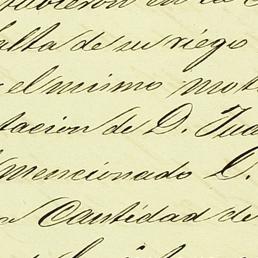 tubieron en la
falta de su riego
el mismo mot
tacion de D. Jua
mencionado D.
Cantidad de